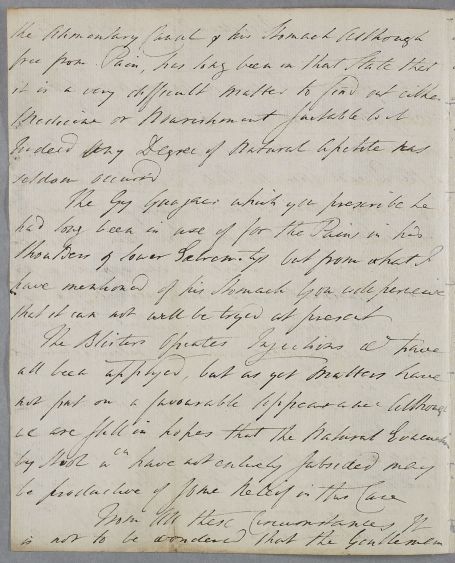 the Alimentary Canal & his Stomach Although
free from Pain, has long been in that State that
it is a very difficult matter to find out either
Medicine or Nourishment Suitable to it
Indeed any Degree of Natural Apetite has
seldom occurred
The Gum Guaiac which you prescribe he
had long been in use of for the Pains in his
Shoulders & lower Extremitys but from what I
have mentioned of his Stomach you will perceive
that it can not well be tryed at present
The Blisters Opiates Injections &c have
all been applyed, but as yet Matters have
not put on a favourable Appearance Although
we are still in hopes that the Natural Evacuation
by Stool wch have not entirely Subsided may
be productive of some Relief in this Case
From All these Circumstances It
is not to be wondered that the Gentlemen